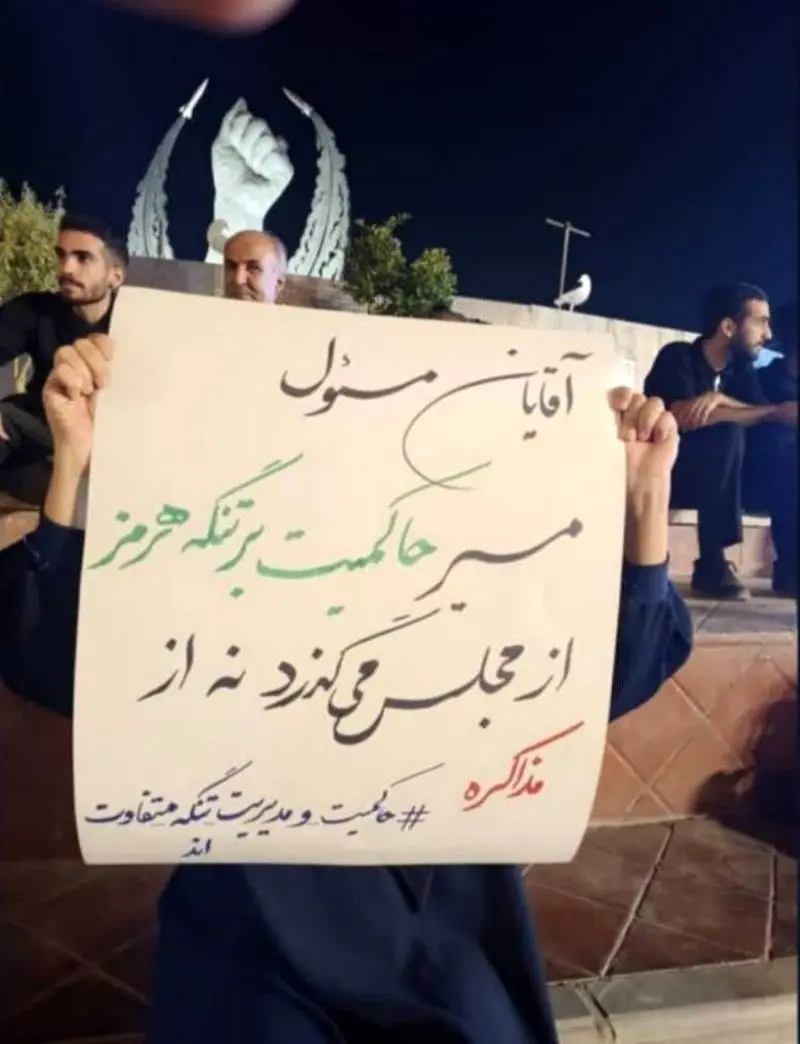 آقایان مسئول
مسیر حاکمیت بر تنگه هرمز
از مجلس می گذرد نه از
مذاکره
#حاکمیت و مدیریت تنگه متفاوت
اند